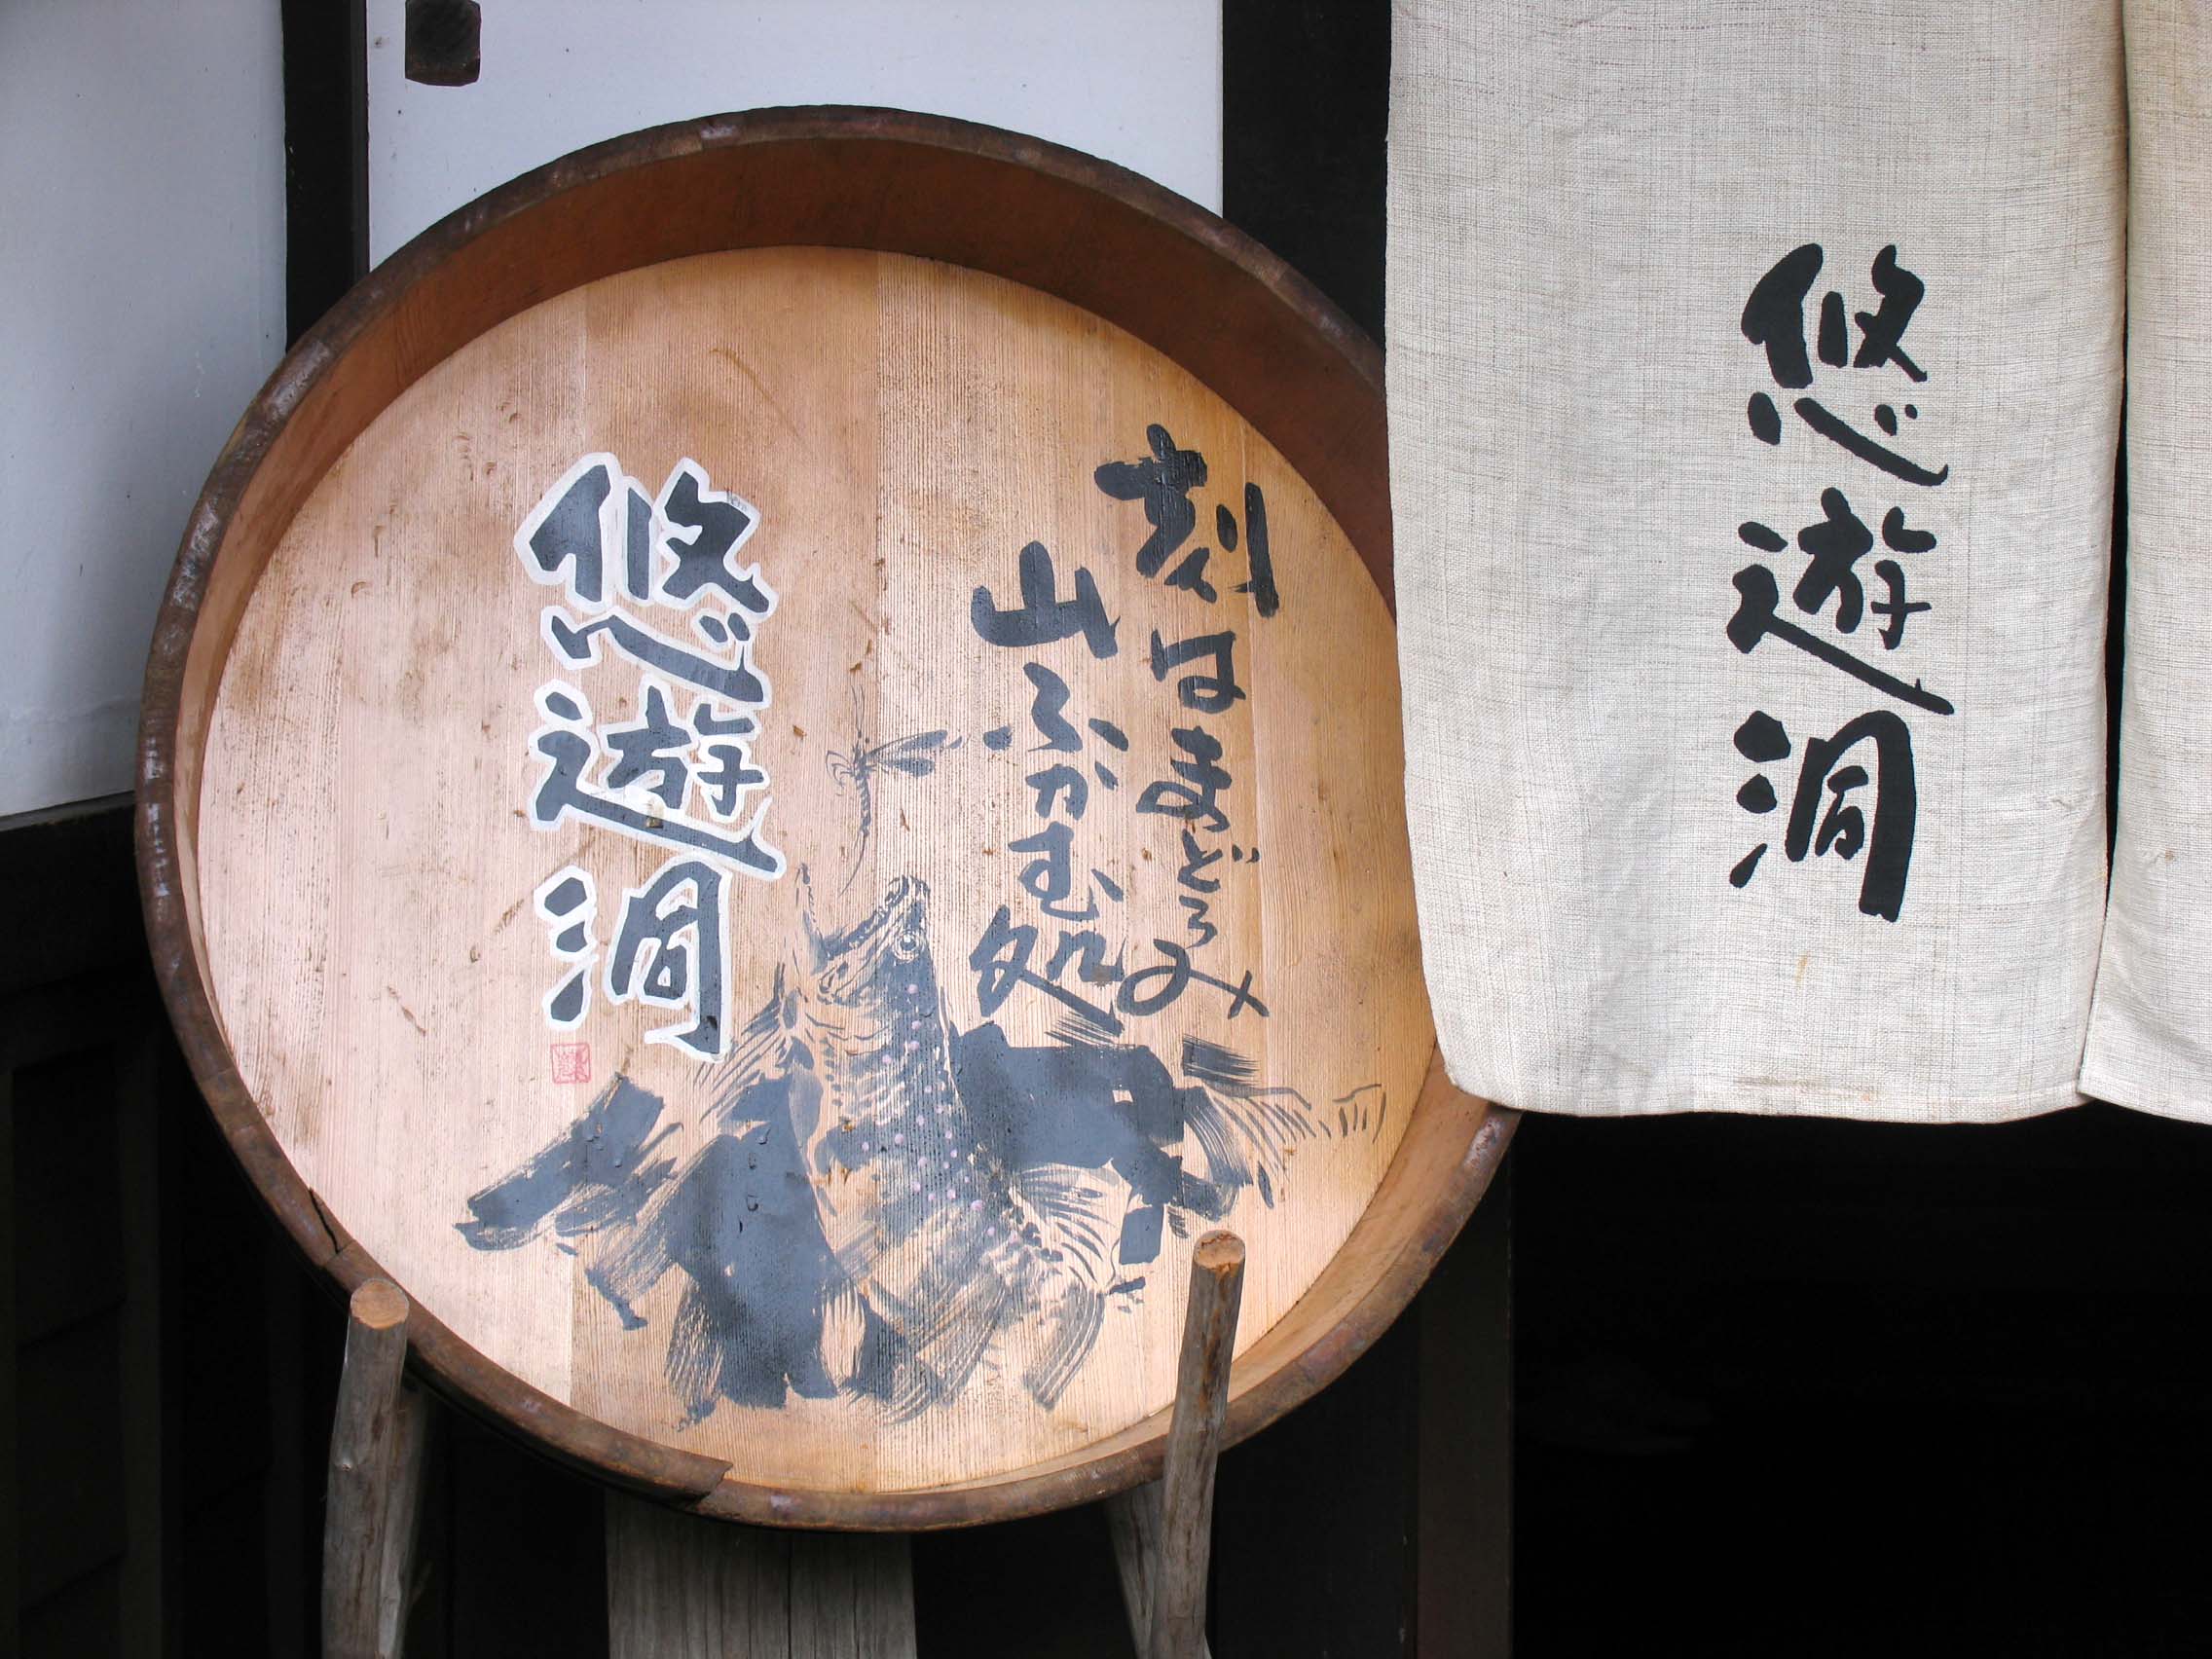 悠遊洞
刻はまどろみ
山ふかむ処
悠遊洞